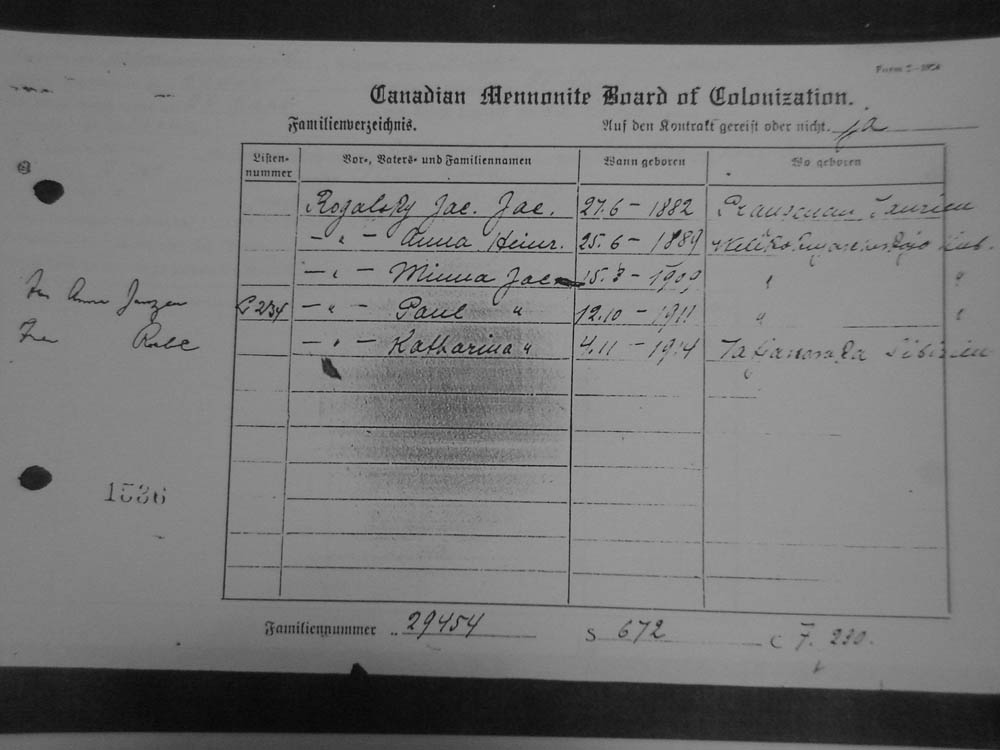 Form 2-1924
Canadian Mennonite Board of Colonization.
Familienverzeichnis. Auf den Kontrakt gereist oder nicht. ja
Listen-nummer Vor-, Vaters- und Familiennamen Wann geboren Wo geboren
Rogalsky Jac. Jac. 27.6 - 1882 Taurien
- " - Anna Heinr. 25.6 - 1889
- " - Minna Jac 15.3 - 1909 " "
Anna Janzen
L 234 - " - Paul " 12.10 - 1911 " "
- " - Katharina " 4.11 - 1914 Sibirien
1536
Familiennummer 29454 S 672 C F. 230.